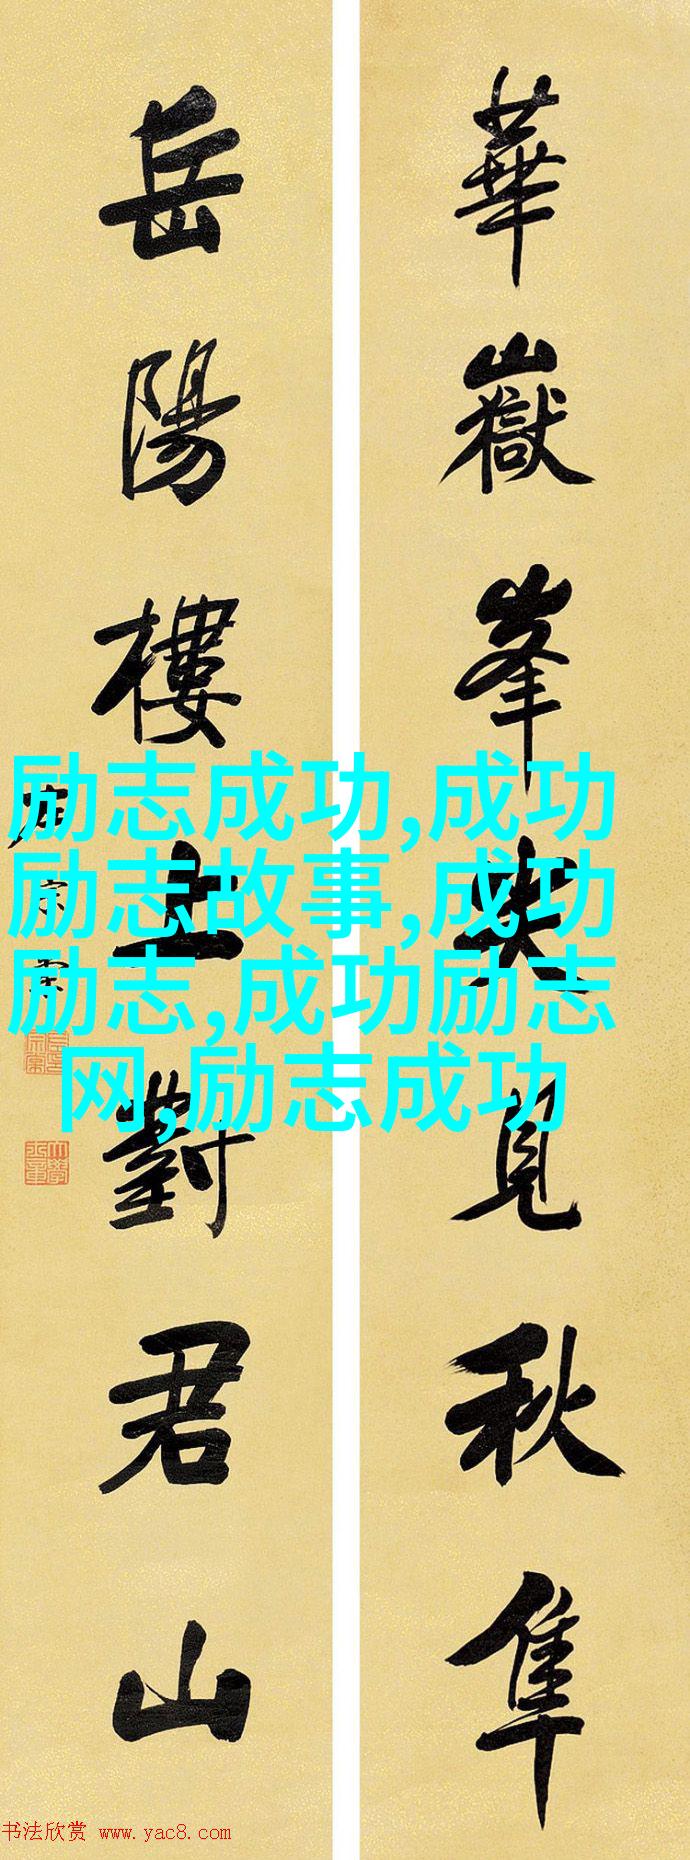 華嶽峯尖見秋隼
岳陽樓上對君山
左宗棠
励志成功,成功
励志故事,成功
励志,成功励志
网,励志成功
书法欣赏 www.yac8.com